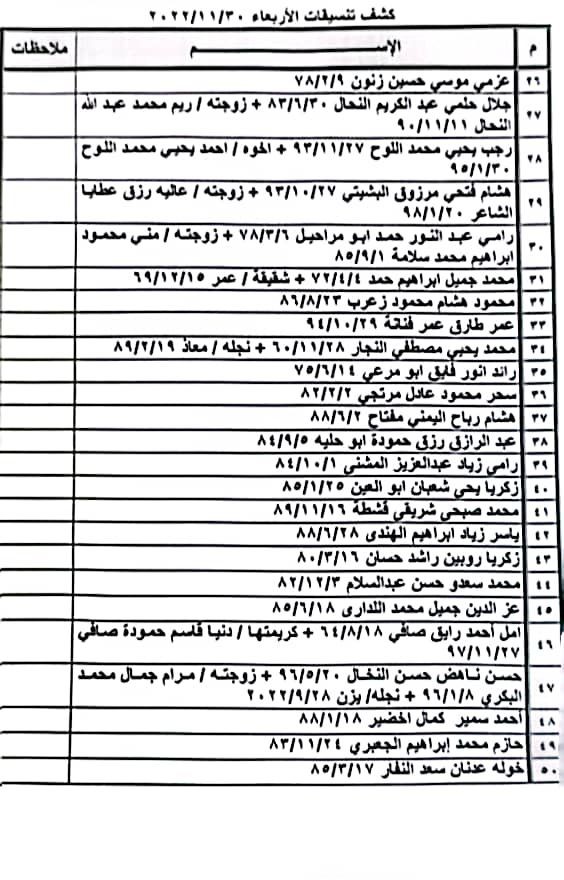 كشف تنسيقات الأربعاء ٢٠٢٢/١١/٣٠
م الإســــــم ملاحظات
٢٦ عزمي موسي حسين زنون ٧٨/٢/٩
٢٧ جلال حلمي عبد الكريم النحال ٨٣/٦/٣٠ + زوجته / ريم محمد عبد الله
النحال ٩٠/١١/١١
٢٨ رجب يحيي محمد اللوح ٩٣/١١/٢٧ + اخوه / احمد يحيي محمد اللوح
٩٥/١/٣٠
٢٩ هشام فتحي مرزوق البشيتي ٩٣/١٠/٢٧ + زوجته / عاليه رزق عطايا
الشاعر ٩٨/١/٢٠
٣٠ رامي عبد النور حمد ابو مراحيل ٧٨/٣/٦ + زوجته / مني محمود
ابراهيم محمد سلامة ٨٥/٩/١
٣١ محمد جميل ابراهيم حمد ٧٢/٤/٤ + شقيقة / عمر ٦٩/١٢/١٥
٣٢ محمود هشام محمود زعرب ٨٦/٨/٢٣
٣٣ عمر طارق عمر فنانة ٩٤/١٠/٢٩
٣٤ محمد يحيي مصطفي النجار ٦٠/١١/٢٨ + نجله / معاذ ٨٩/٢/١٩
٣٥ رائد انور فايق ابو مرعي ٧٥/٦/١٤
٣٦ سحر محمود عادل مرتجي ٨٢/٢/٢
٣٧ هشام رباح اليمني مفتاح ٨٨/٦/٢
٣٨ عبد الرازق رزق حمودة ابو حليه ٨٤/٩/٥
٣٩ رامي زياد عبدالعزيز المشني ٨٤/١٠/١
٤٠ زكريا يحي شعبان ابو العين ٨٥/١/٢٥
٤١ محمد صبحي شريقي قشطة ٨٩/١١/١٦
٤٢ ياسر زياد ابراهيم الهندى ٨٨/٦/٢٨
٤٣ زكريا روبين راشد حسان ٨٠/٣/١٦
٤٤ محمد سعدو حسن عبدالسلام ٨٢/١٢/٣
٤٥ عز الدين جميل محمد اللدارى ٨٥/٦/١٨
٤٦ امل أحمد رايق صافي ٦٤/٨/١٨ + كريمتها / دنيا قاسم حمودة صافي
٩٧/١١/٢٧
٤٧ حسن ناهض حسن النخال ٩٦/٥/٢٠ + زوجته / مرام جمال محمد
البكري ٩٦/١/٨ + نجله/ يزن ٢٠٢٢/٩/٢٨
٤٨ أحمد سمير كمال اخضير ٨٨/١/١٨
٤٩ حازم محمد إبراهيم الجعبري ٨٣/١١/٢٤
٥٠ خوله عدنان سعد النفار ٨٥/٣/١٧